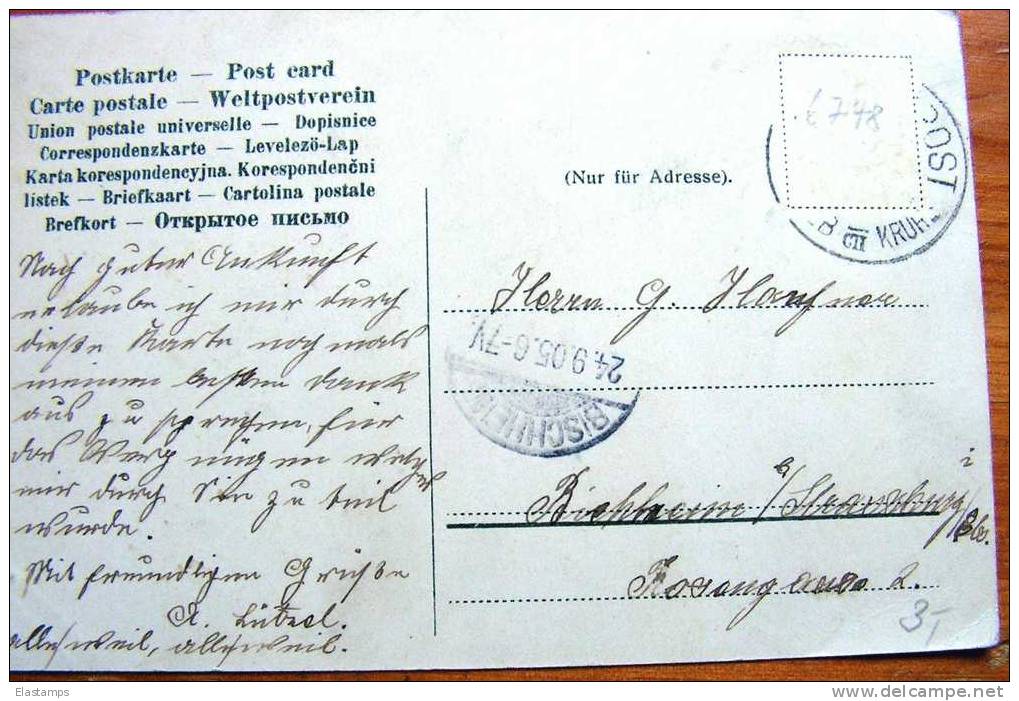 Postkarte — Post card
Carte postale — Weltpostverein
Union postale universelle — Dopisnice
Correspondenzkarte — Levelezö-Lap
Karta korespondencyjna. Korespondenčni
listek — Briefkaart — Cartolina postale
Brefkort — Открытое письмо
(Nur für Adresse).
6748
POST
CII KRUH
Nach guter Ankunft
erlaube ich mir durch
dieße Karte nochmals
meinen besten Dank
aus zu sprechen, für
das Vergnügen welches
mir durch Sie zu teil
wurde.
Mit freundligen Grüße
A. Lützel.
alleweil, alleweil.
Herrn G. Haufner
24.9.05.6-7V.
BISCHHEIM
Bischheim b/ Strassburg i/Els.
2.
3,-
Elastamps
www.delcampe.net